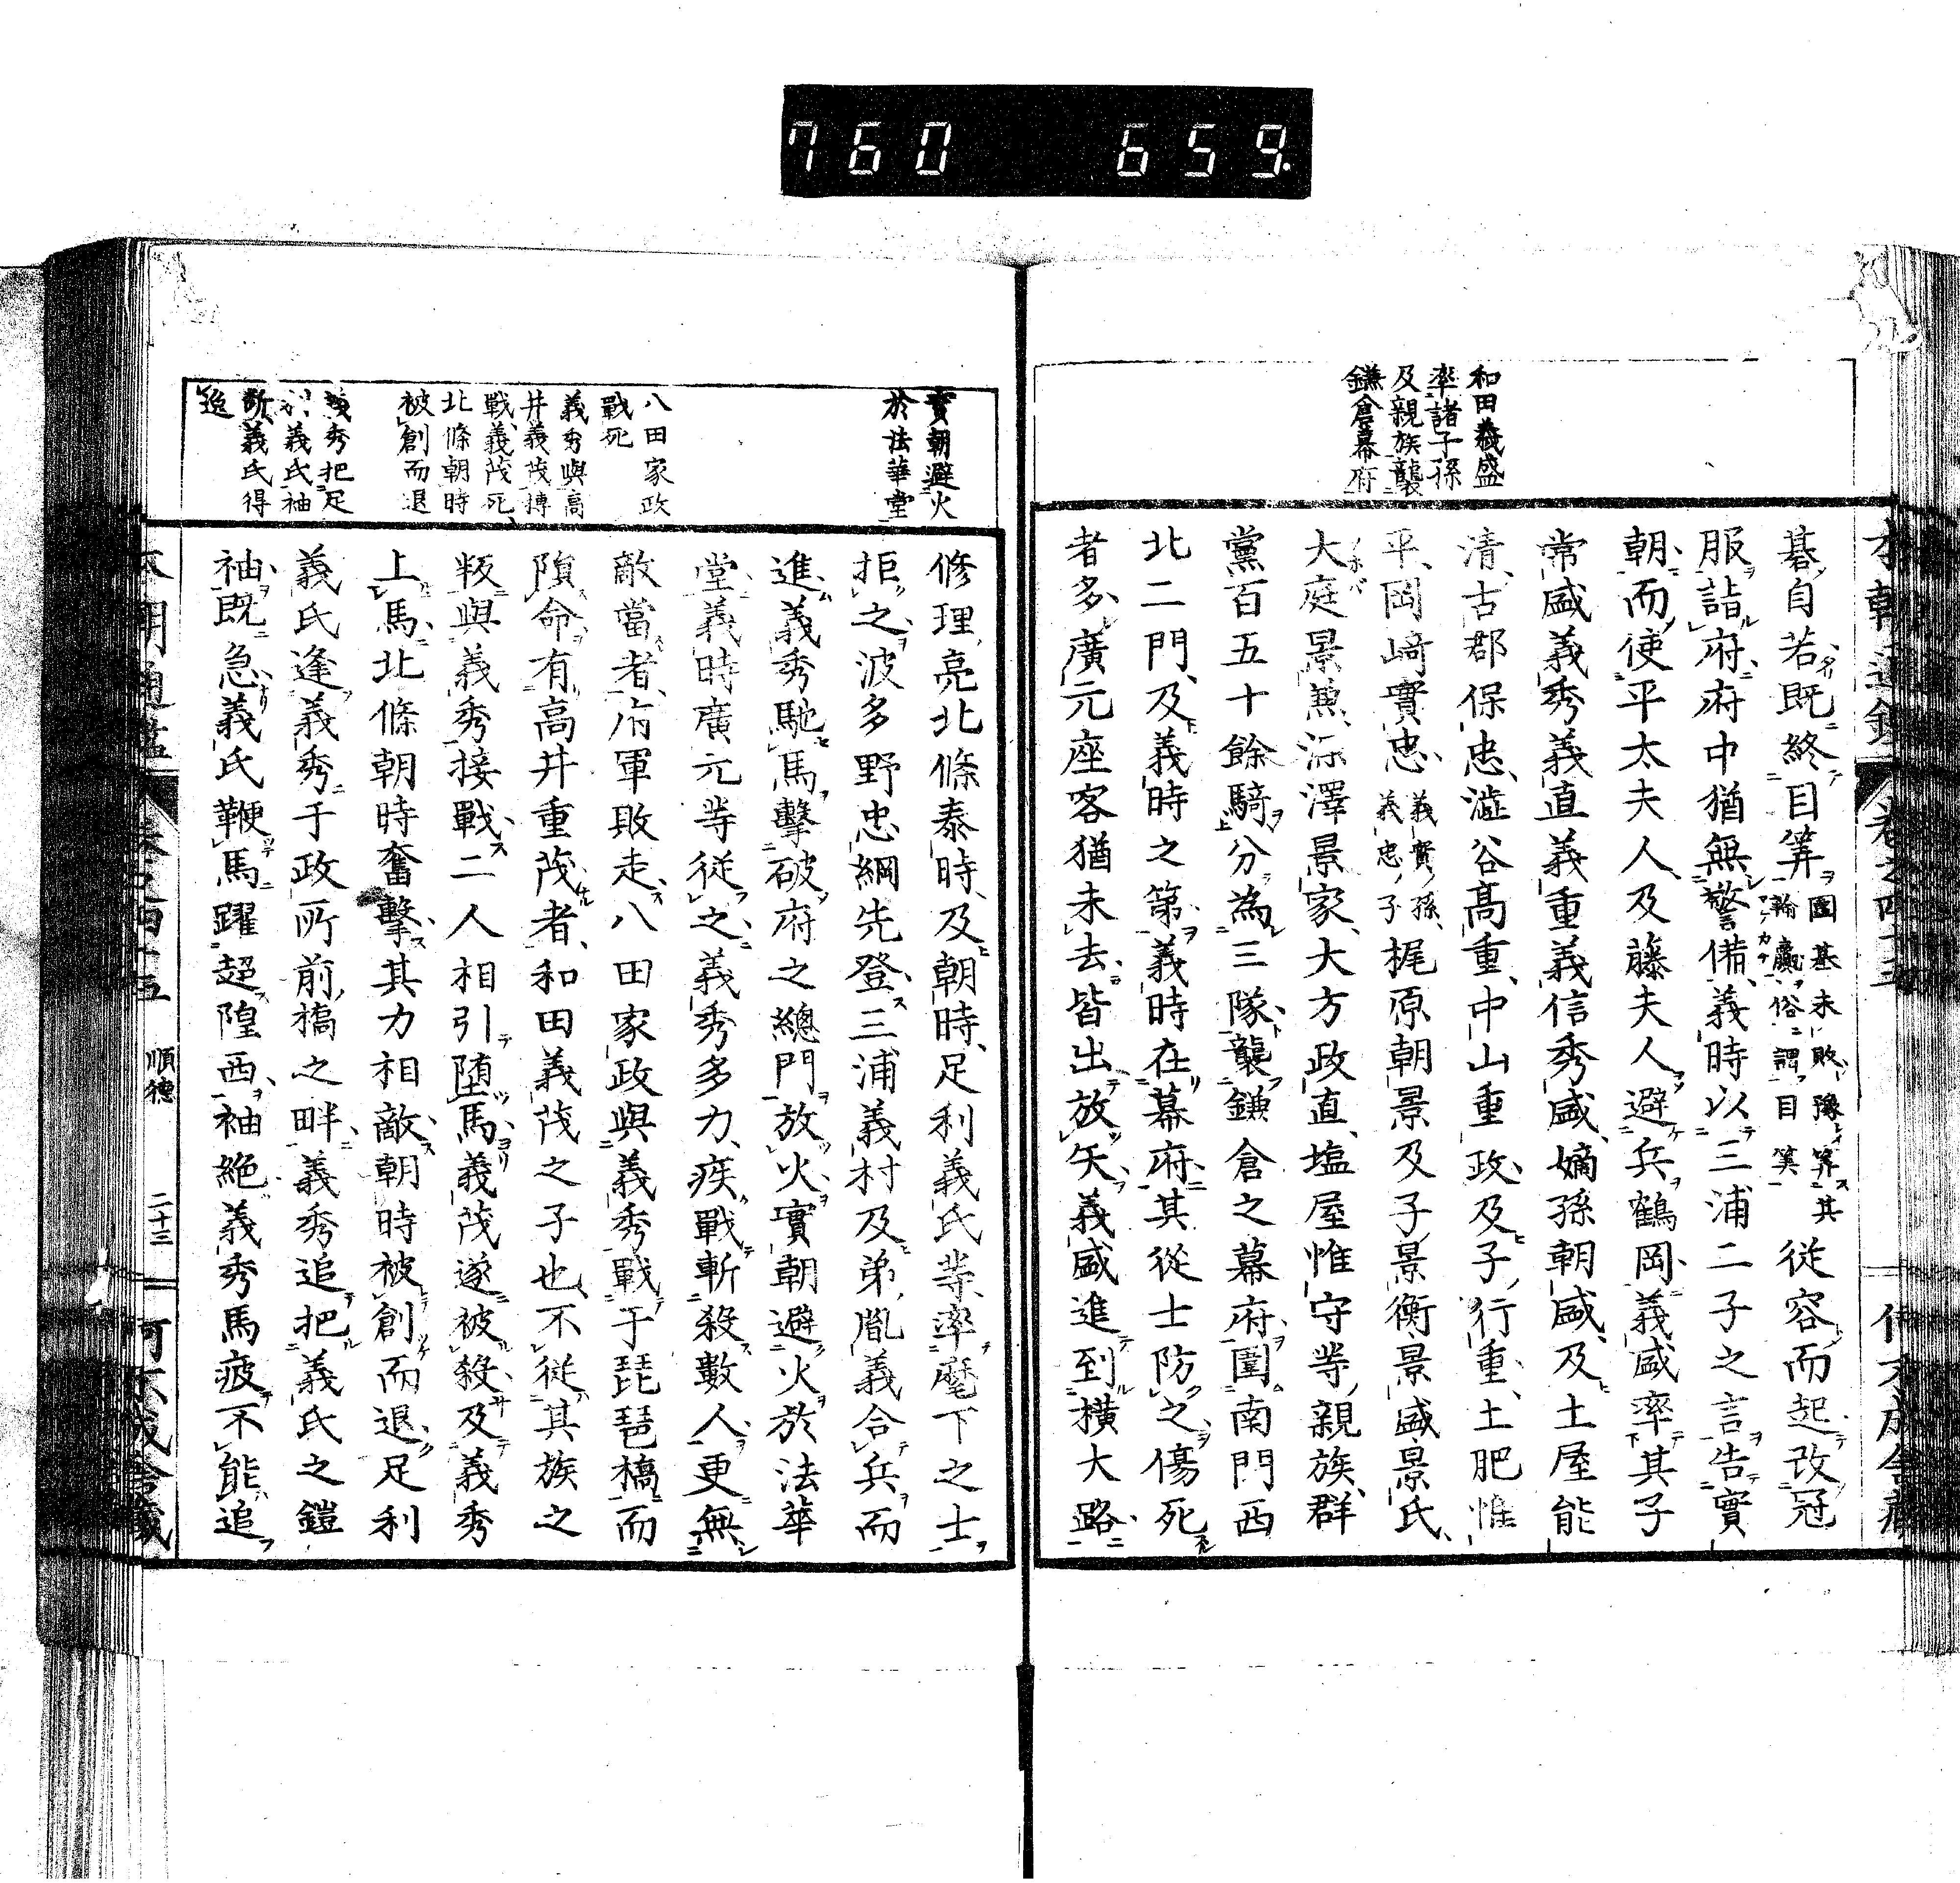 760 659.
和田義盛
率諸子孫
及親族襲
鎌倉幕府
碁自若既終目筭圍碁未敗豫筭其輸贏俗謂目筭從容而起改冠
服詣府府中猶無警備義時以三浦二子之言告實
朝而使平太夫人及藤夫人避兵鶴岡義盛率其子
常盛義秀義直義重義信秀盛嫡孫朝盛及土屋能
清古郡保忠澁谷高重中山重政及子行重土肥惟
平岡﨑實忠義實孫義忠子梶原朝景及子景衡景盛景氏
大庭景兼深澤景家大方政直塩屋惟守等親族群
黨百五十餘騎分為三隊襲鎌倉之幕府圍南門西
北二門及義時之第義時在幕府其從士防之傷死
者多廣元座客猶未去皆出放矢義盛進到横大路
實朝避火
於法華堂
八田家政
戰死
義秀與高
井義茂搏
戰義茂死
北條朝時
被創而退
義秀把足
利義氏袖
斷義氏得
逸
修理亮北條泰時及朝時足利義氏等率麾下之士
拒之波多野忠綱先登三浦義村及弟胤義合兵而
進義秀馳馬擊破府之總門放火實朝避火於法華
堂義時廣元等從之義秀多力疾戰斬殺數人更無
敵當者府軍敗走八田家政與義秀戰于琵琶橋而
隕命有高井重茂者和田義茂之子也不從其族之
叛與義秀接戰二人相引堕馬義茂遂被殺及義秀
上馬北條朝時奮擊其力相敵朝時被創而退足利
義氏逢義秀于政所前橋之畔義秀追把義氏之鎧
袖既急義氏鞭馬躍超隍西袖絶義秀馬疲不能追
順德
二十三